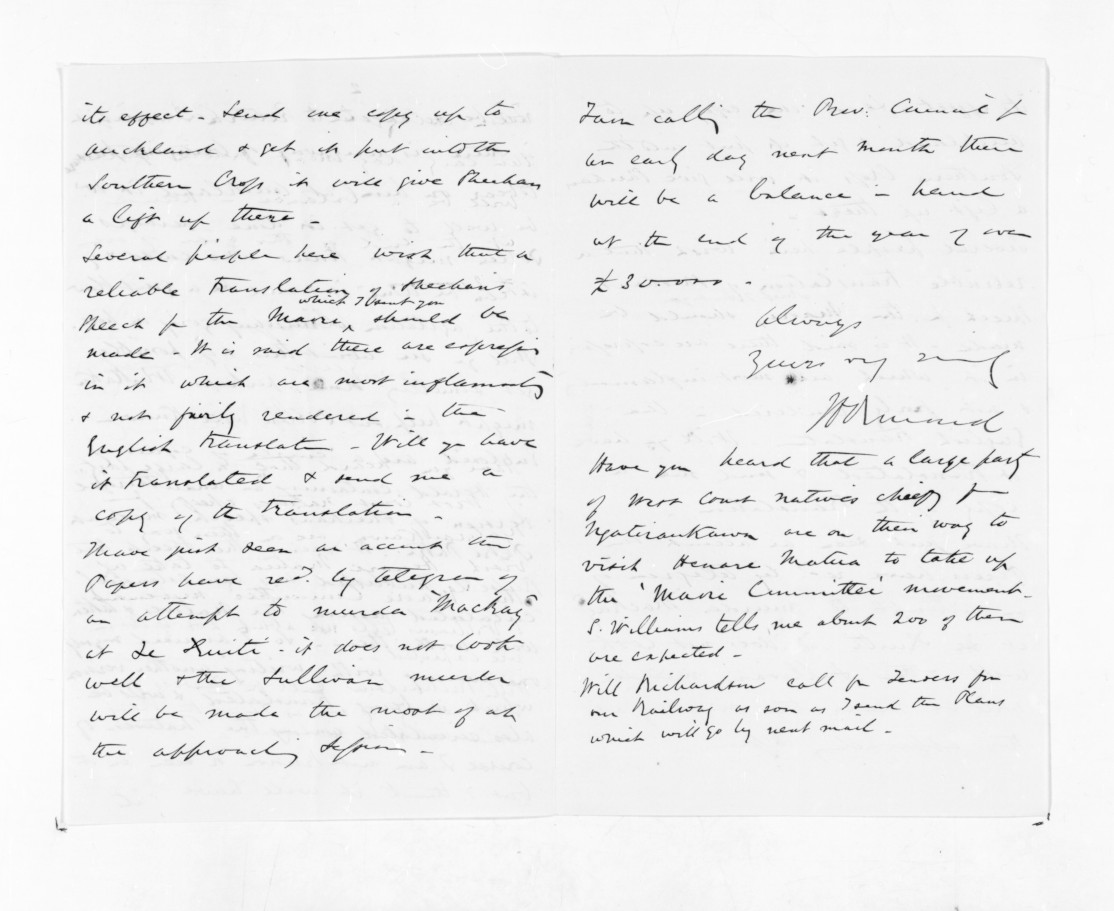 its effect - Send one copy up to
Auckland & get it put into the
Southern Cross it will give Sheehan
a lift up there -
Several people here wish that a
reliable translation of Sheehan's
speech for the Maori which I sent you should be
made - It is said there are expressions
in it which are most inflammatory
& not fairly rendered in the
English translation - Will you have
it translated & send me a
copy of the translation -
Have just seen an account the
Papers have recd. by telegram of
an attempt to murder Mackay
at Te Kuiti - it does not look
well & the Sullivan murder
will be made the most of at
the approaching session -
I am calling the Prov: Council for
an early day next month there
will be a balance in hand
at the end of the year of over
£30.000 -
Always
Yours very sincerely
JD Ormond
Have you heard that a large party
of West Coast natives chiefly
Ngatiraukawa are on their way to
visit Henare Matua to take up
the 'Maori Committee' movement -
S. Williams tells me about 200 of them
are expected -
Will Richardson call for Tenders for
our Railway as soon as I send the Plans
which will go by next mail -